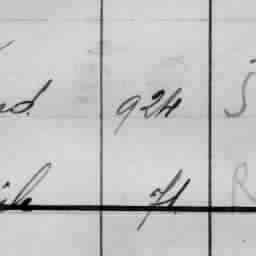 nd. 924 S
ile 71 R